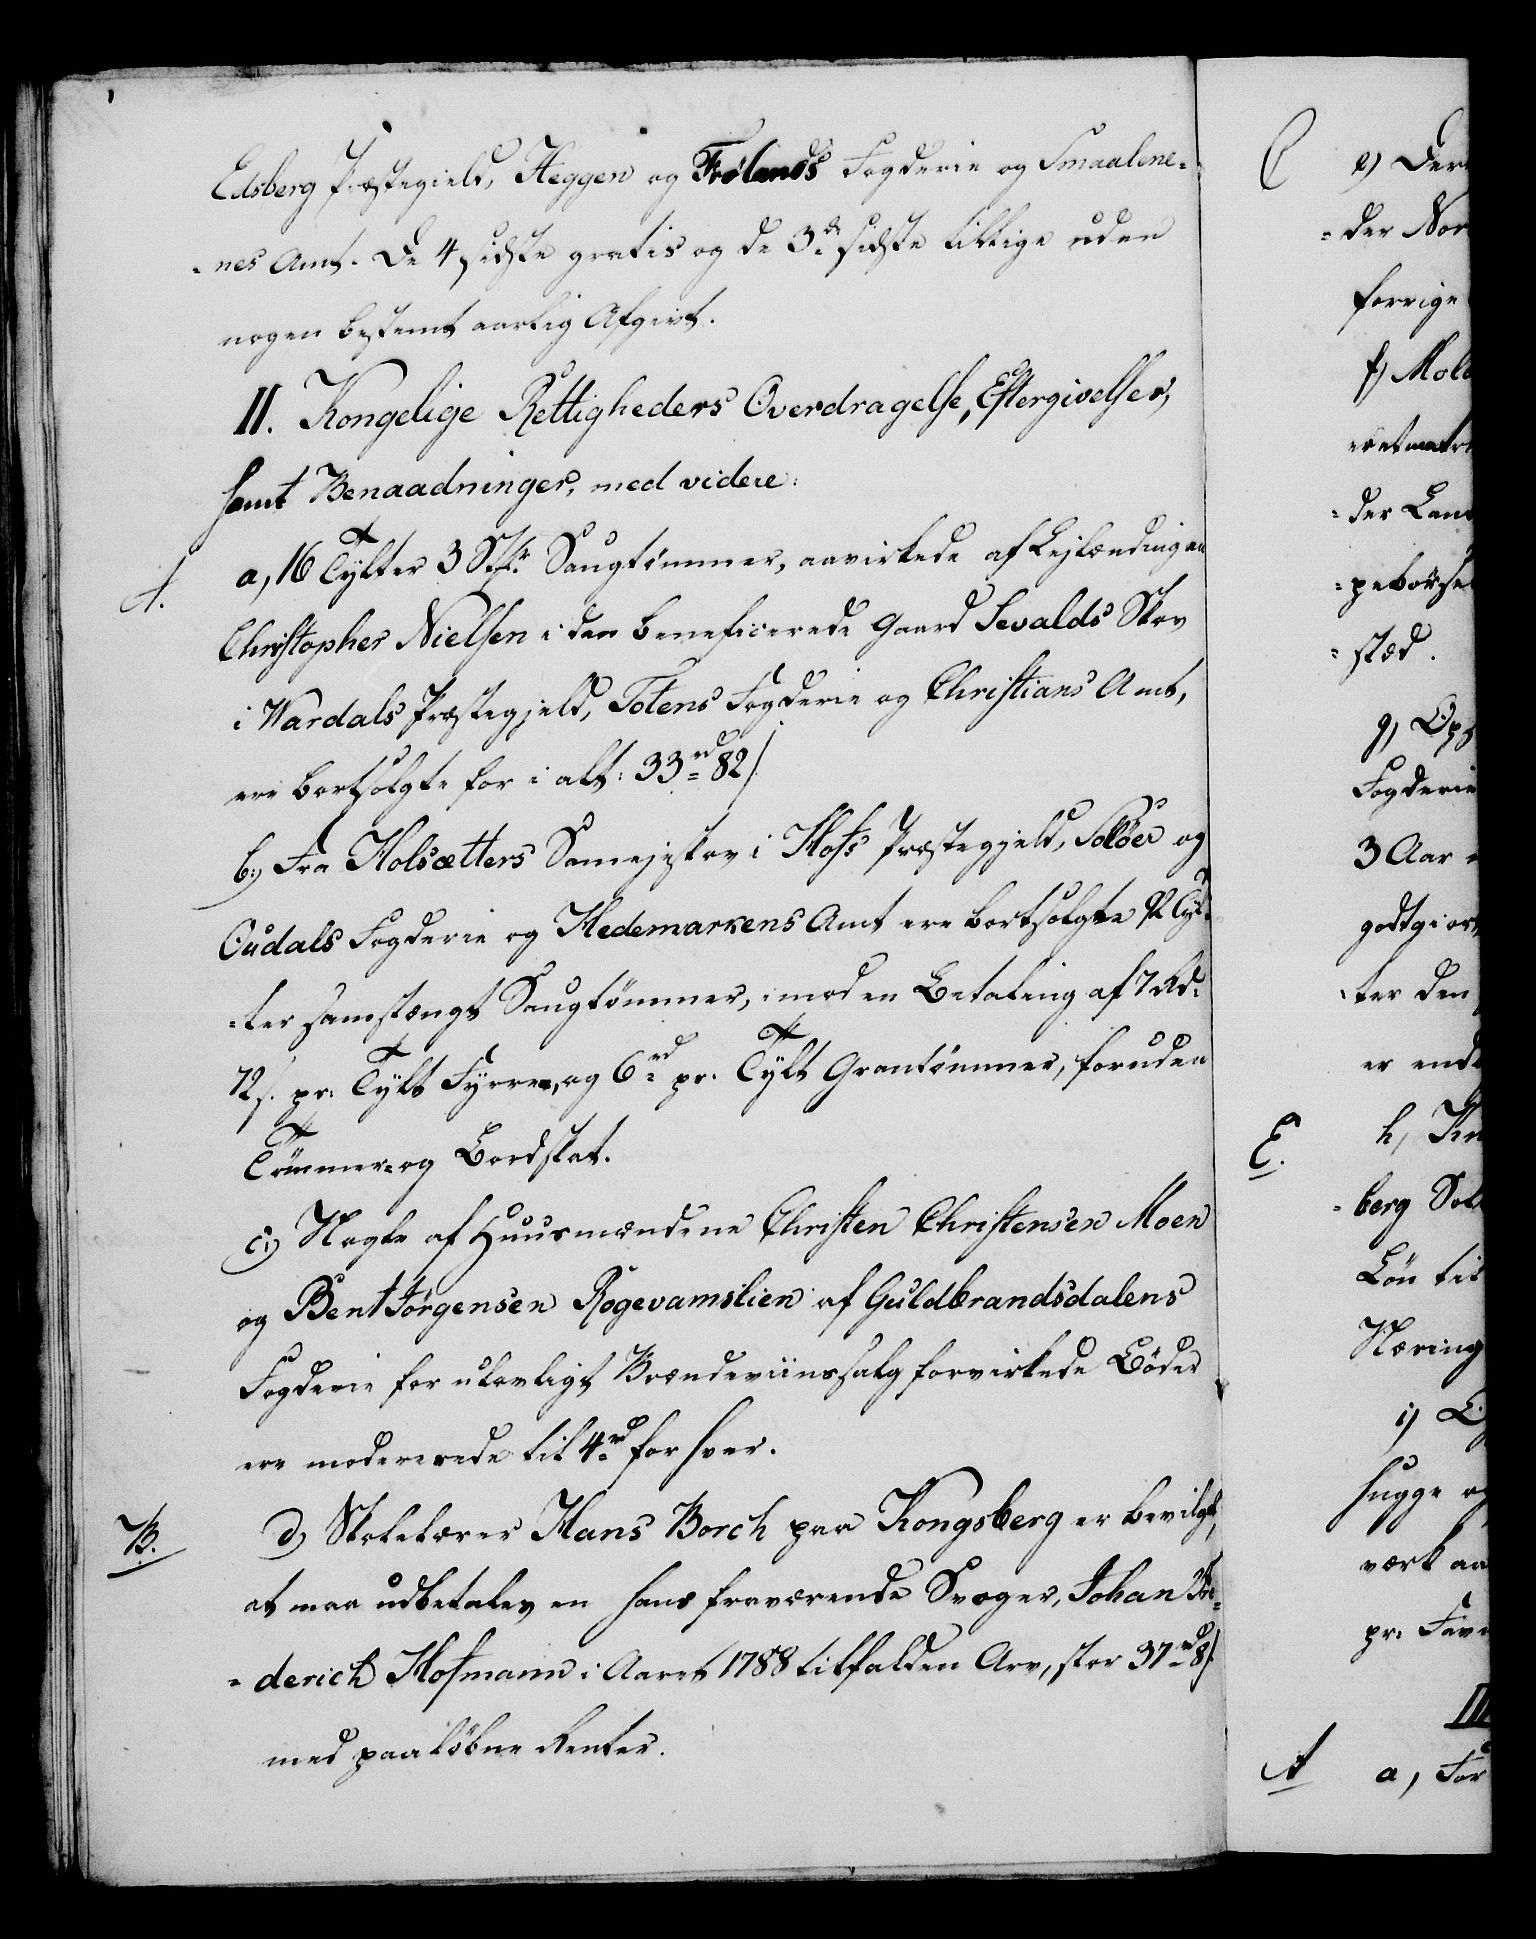 Edsberg Præstegield, Heggen og Frølands Fogderie og Smaalene-
-nes Amt. De 4 sidste gratis og de 3de sidste tillige uden
nogen bestemt aarlig Afgivt.
II. Kongelige Rettigheders Overdragelse, Eftergivelser,
samt Benaadninger, med videre:
A.
a, 16 Tylter 3 Stkr. Saugtömmer, aavirkede af Lejlændingen
Christopher Nielsen i den beneficerede Gaard Sevalds Skov
i Wardals Præstegjeld, Totens Fogderie og Christians Amt,
ere bortsolgte for i alt: 33rd 82/.
b,) Fra Holsætters Samejeskov i Hofs Præstegjeld, Solöer og
Oudals Fogderie og Hedemarkens Amt ere bortsolgte Tyl-
-ter Saugtömmer, imod en Betaling af 7 Rd.
72/. pr. Tylt Fyrre, og 6rd pr. Tylt Grantömmer, foruden
Tömmer- og Bordskat.
c,) Nogle af Huusmændene Christen Christensen Moen
og Bent Jörgensen Rogevamslien af Guldbrandsdalens
Fogderie for ulovligt Brændeviinssalg forvirkede Böder
ere modererede til 4rd for hver.
B.
d, Skolelærer Hans Borch paa Kongsberg er bevilget,
at maa udbetales en hans fraværende Svoger, Johan Fre-
-derich Hofmann i Aaret 1788 tilfalden Arv, stor 37rd 8/.
med paalöbne Renter.
C
e) Der
-der Nor
forrige
f) Mol
der Lan
-pebörse
-stæd.
g) Op
Fogderie
3 Aar
godtgior
-ter den
er end
E.
h,
-berg Sol
Lön til
Næring
i)
hugge og
værk aa
pr. Favn
III
A
a, For